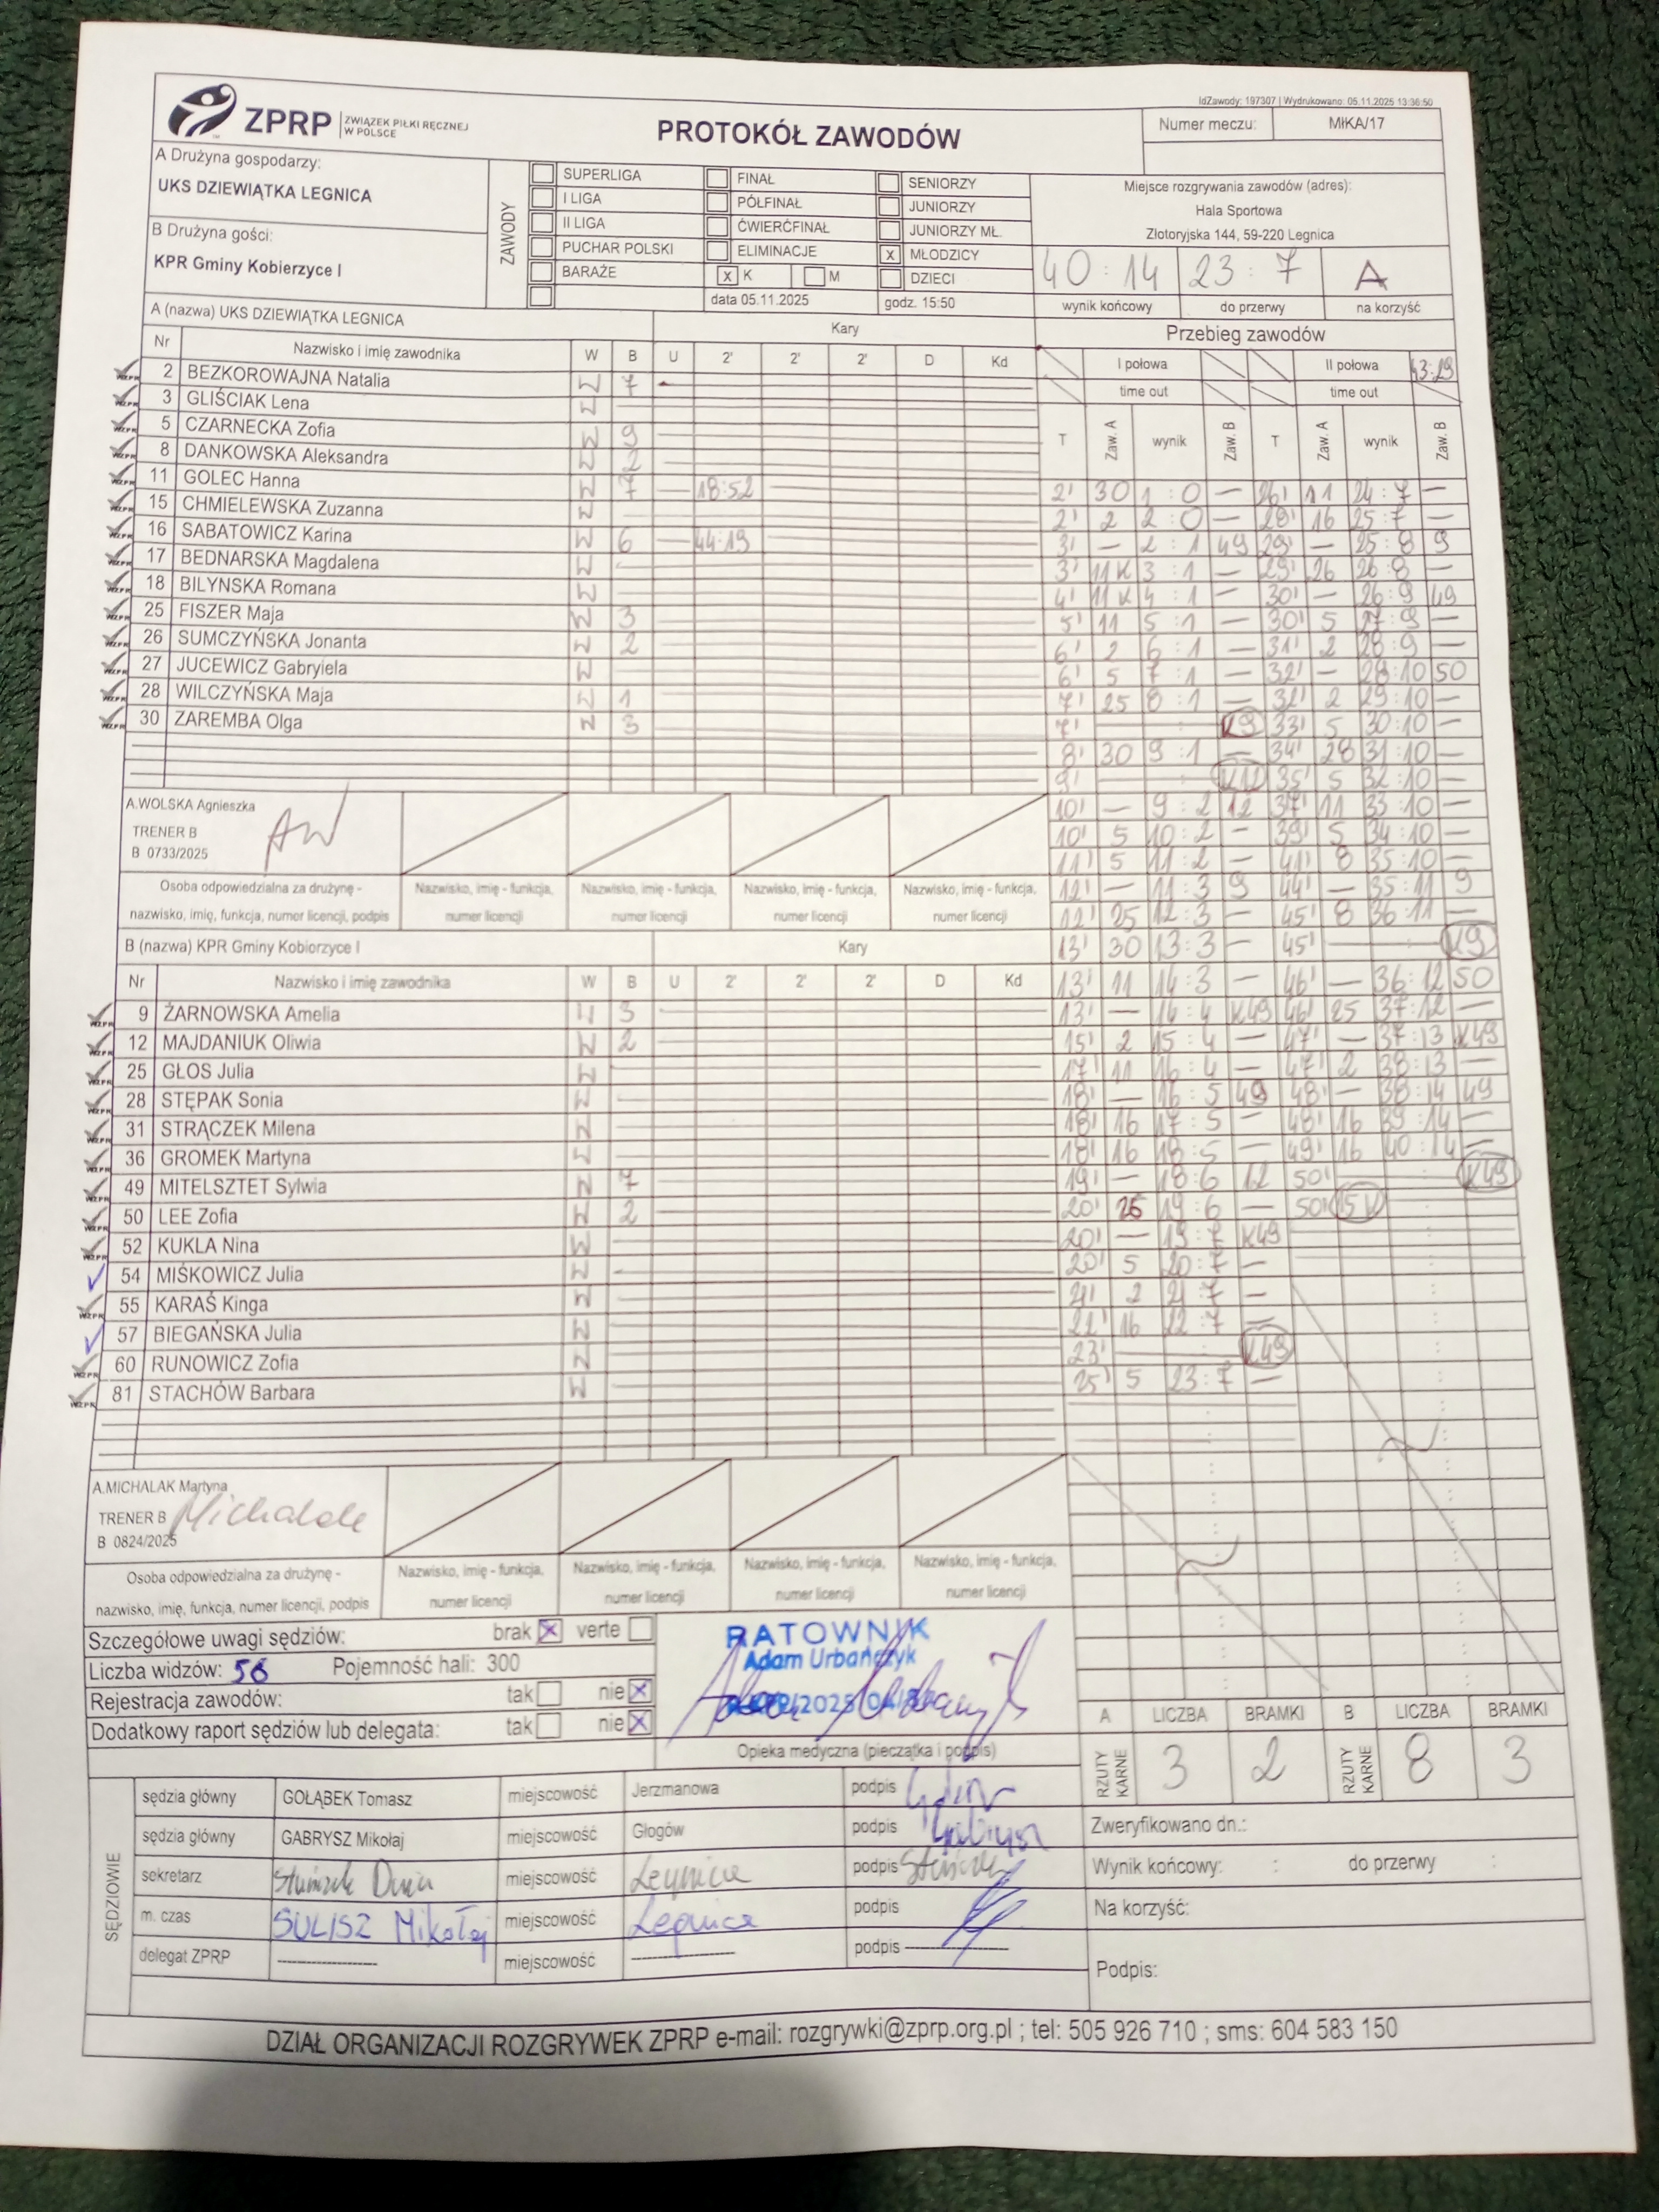 IdZawody: 197307 | Wydrukowano: 05.11.2025 13:36:50
ZPRP ZWIĄZEK PIŁKI RĘCZNEJ W POLSCE
PROTOKÓŁ ZAWODÓW
Numer meczu: MłKA/17
A Drużyna gospodarzy:
UKS DZIEWIĄTKA LEGNICA
B Drużyna gości:
KPR Gminy Kobierzyce I
ZAWODY
SUPERLIGA FINAŁ SENIORZY
I LIGA PÓŁFINAŁ JUNIORZY
II LIGA ĆWIERĆFINAŁ JUNIORZY MŁ.
PUCHAR POLSKI ELIMINACJE x MŁODZICY
BARAŻE x K M DZIECI
data 05.11.2025 godz. 15:50
Miejsce rozgrywania zawodów (adres):
Hala Sportowa
Złotoryjska 144, 59-220 Legnica
40:14 23:7 A
wynik końcowy do przerwy na korzyść
A (nazwa) UKS DZIEWIĄTKA LEGNICA Kary
Nr Nazwisko i imię zawodnika W B U 2' 2' 2' D Kd
2 BEZKOROWAJNA Natalia 7
3 GLIŚCIAK Lena
5 CZARNECKA Zofia 9
8 DANKOWSKA Aleksandra 2
11 GOLEC Hanna 7 18:52
15 CHMIELEWSKA Zuzanna
16 SABATOWICZ Karina 6 44:19
17 BEDNARSKA Magdalena
18 BILYNSKA Romana
25 FISZER Maja 3
26 SUMCZYŃSKA Jonanta 2
27 JUCEWICZ Gabryiela
28 WILCZYŃSKA Maja 1
30 ZAREMBA Olga 3
A.WOLSKA Agnieszka
TRENER B
B 0733/2025
AW
Osoba odpowiedzialna za drużynę -
nazwisko, imię, funkcja, numer licencji, podpis
Nazwisko, imię - funkcja, numer licencji
Nazwisko, imię - funkcja, numer licencji
Nazwisko, imię - funkcja, numer licencji
Nazwisko, imię - funkcja, numer licencji
B (nazwa) KPR Gminy Kobiorzyce I Kary
Nr Nazwisko i imię zawodnika W B U 2' 2' 2' D Kd
9 ŻARNOWSKA Amelia 3
12 MAJDANIUK Oliwia 2
25 GŁOS Julia
28 STĘPAK Sonia
31 STRĄCZEK Milena
36 GROMEK Martyna
49 MITELSZTET Sylwia 7
50 LEE Zofia 2
52 KUKLA Nina
54 MIŚKOWICZ Julia
55 KARAŚ Kinga
57 BIEGAŃSKA Julia
60 RUNOWICZ Zofia
81 STACHÓW Barbara
A.MICHALAK Martyna
TRENER B
B 0824/2025
Michalak
Osoba odpowiedzialna za drużynę -
nazwisko, imię, funkcja, numer licencji, podpis
Nazwisko, imię - funkcja, numer licencji
Nazwisko, imię - funkcja, numer licencji
Nazwisko, imię - funkcja, numer licencji
Nazwisko, imię - funkcja, numer licencji
Przebieg zawodów
I połowa II połowa 43:29
time out time out
T Zaw. A wynik Zaw. B T Zaw. A wynik Zaw. B
2' 30 1:0 — 26' 11 24:7 —
2' 2 2:0 — 28' 16 25:7 —
3' — 2:1 49 29' — 25:8 9
3' 11K 3:1 — 29' 26 26:8 —
4' 11K 4:1 — 30' — 26:9 49
5' 11 5:1 — 30' 5 27:9 —
6' 2 6:1 — 31' 2 28:9 —
6' 5 7:1 — 32' — 28:10 50
7' 25 8:1 — 32' 2 29:10 —
7' K9 33' 5 30:10 —
8' 30 9:1 — 34' 28 31:10 —
9' K12 35' 5 32:10 —
10' — 9:2 12 37' 11 33:10 —
10' 5 10:2 — 39' 5 34:10 —
11' 5 11:2 — 41' 8 35:10 —
12' — 11:3 9 44' — 35:11 9
12' 25 12:3 — 45' 8 36:11 —
13' 30 13:3 — 45' K9
13' 11 14:3 — 46' — 36:12 50
13' — 14:4 K49 46' 25 37:12 —
15' 2 15:4 — 47' — 37:13 K49
17' 11 16:4 — 47' 2 38:13 —
18' — 16:5 49 48' — 38:14 49
18' 16 17:5 — 48' 16 39:14 —
18' 16 18:5 — 49' 16 40:14 —
19' — 18:6 12 50' K49
20' 26 19:6 — 50' 15K
20' — 19:7 K49
20' 5 20:7 —
21' 2 21:7 —
22' 16 22:7 —
23' K49
25' 5 23:7 —
Szczegółowe uwagi sędziów: brak x verte
Liczba widzów: 56 Pojemność hali: 300
Rejestracja zawodów: tak nie x
Dodatkowy raport sędziów lub delegata: tak nie x
RATOWNIK
Adam Urbańczyk
Opieka medyczna (pieczątka i podpis)
A LICZBA BRAMKI B LICZBA BRAMKI
RZUTY KARNE 3 2 RZUTY KARNE 8 3
SĘDZIOWIE
sędzia główny GOŁĄBEK Tomasz miejscowość Jerzmanowa podpis
sędzia główny GABRYSZ Mikołaj miejscowość Głogów podpis
sekretarz miejscowość Legnica podpis
m. czas SULISZ Mikołaj miejscowość Legnica podpis
delegat ZPRP miejscowość podpis
Zweryfikowano dn.:
Wynik końcowy: : do przerwy :
Na korzyść:
Podpis:
DZIAŁ ORGANIZACJI ROZGRYWEK ZPRP e-mail: rozgrywki@zprp.org.pl ; tel: 505 926 710 ; sms: 604 583 150